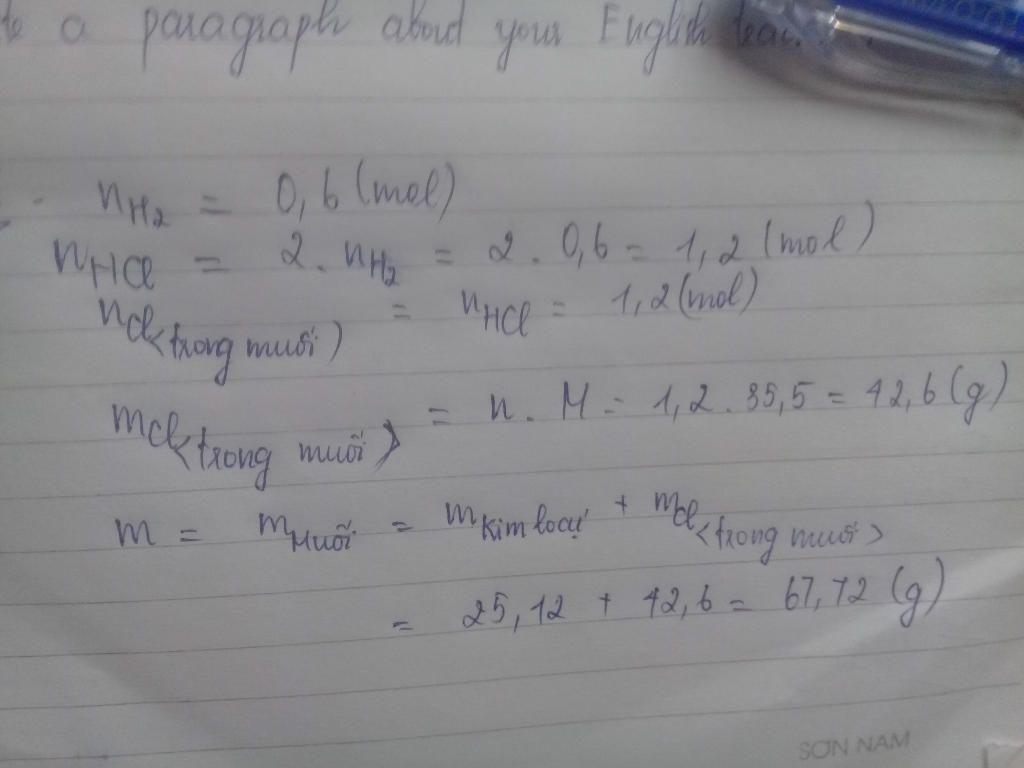 a paragraph about your English
nH2 = 0,6 (mol)
nHCl = 2 . nH2 = 2 . 0,6 = 1,2 (mol)
nCl (trong muối) = nHCl = 1,2 (mol)
mCl (trong muối) = n . M = 1,2 . 35,5 = 42,6 (g)
m = mMuối = mKim loại + mCl <trong muối>
= 25,12 + 42,6 = 67,72 (g)
SƠN NAM